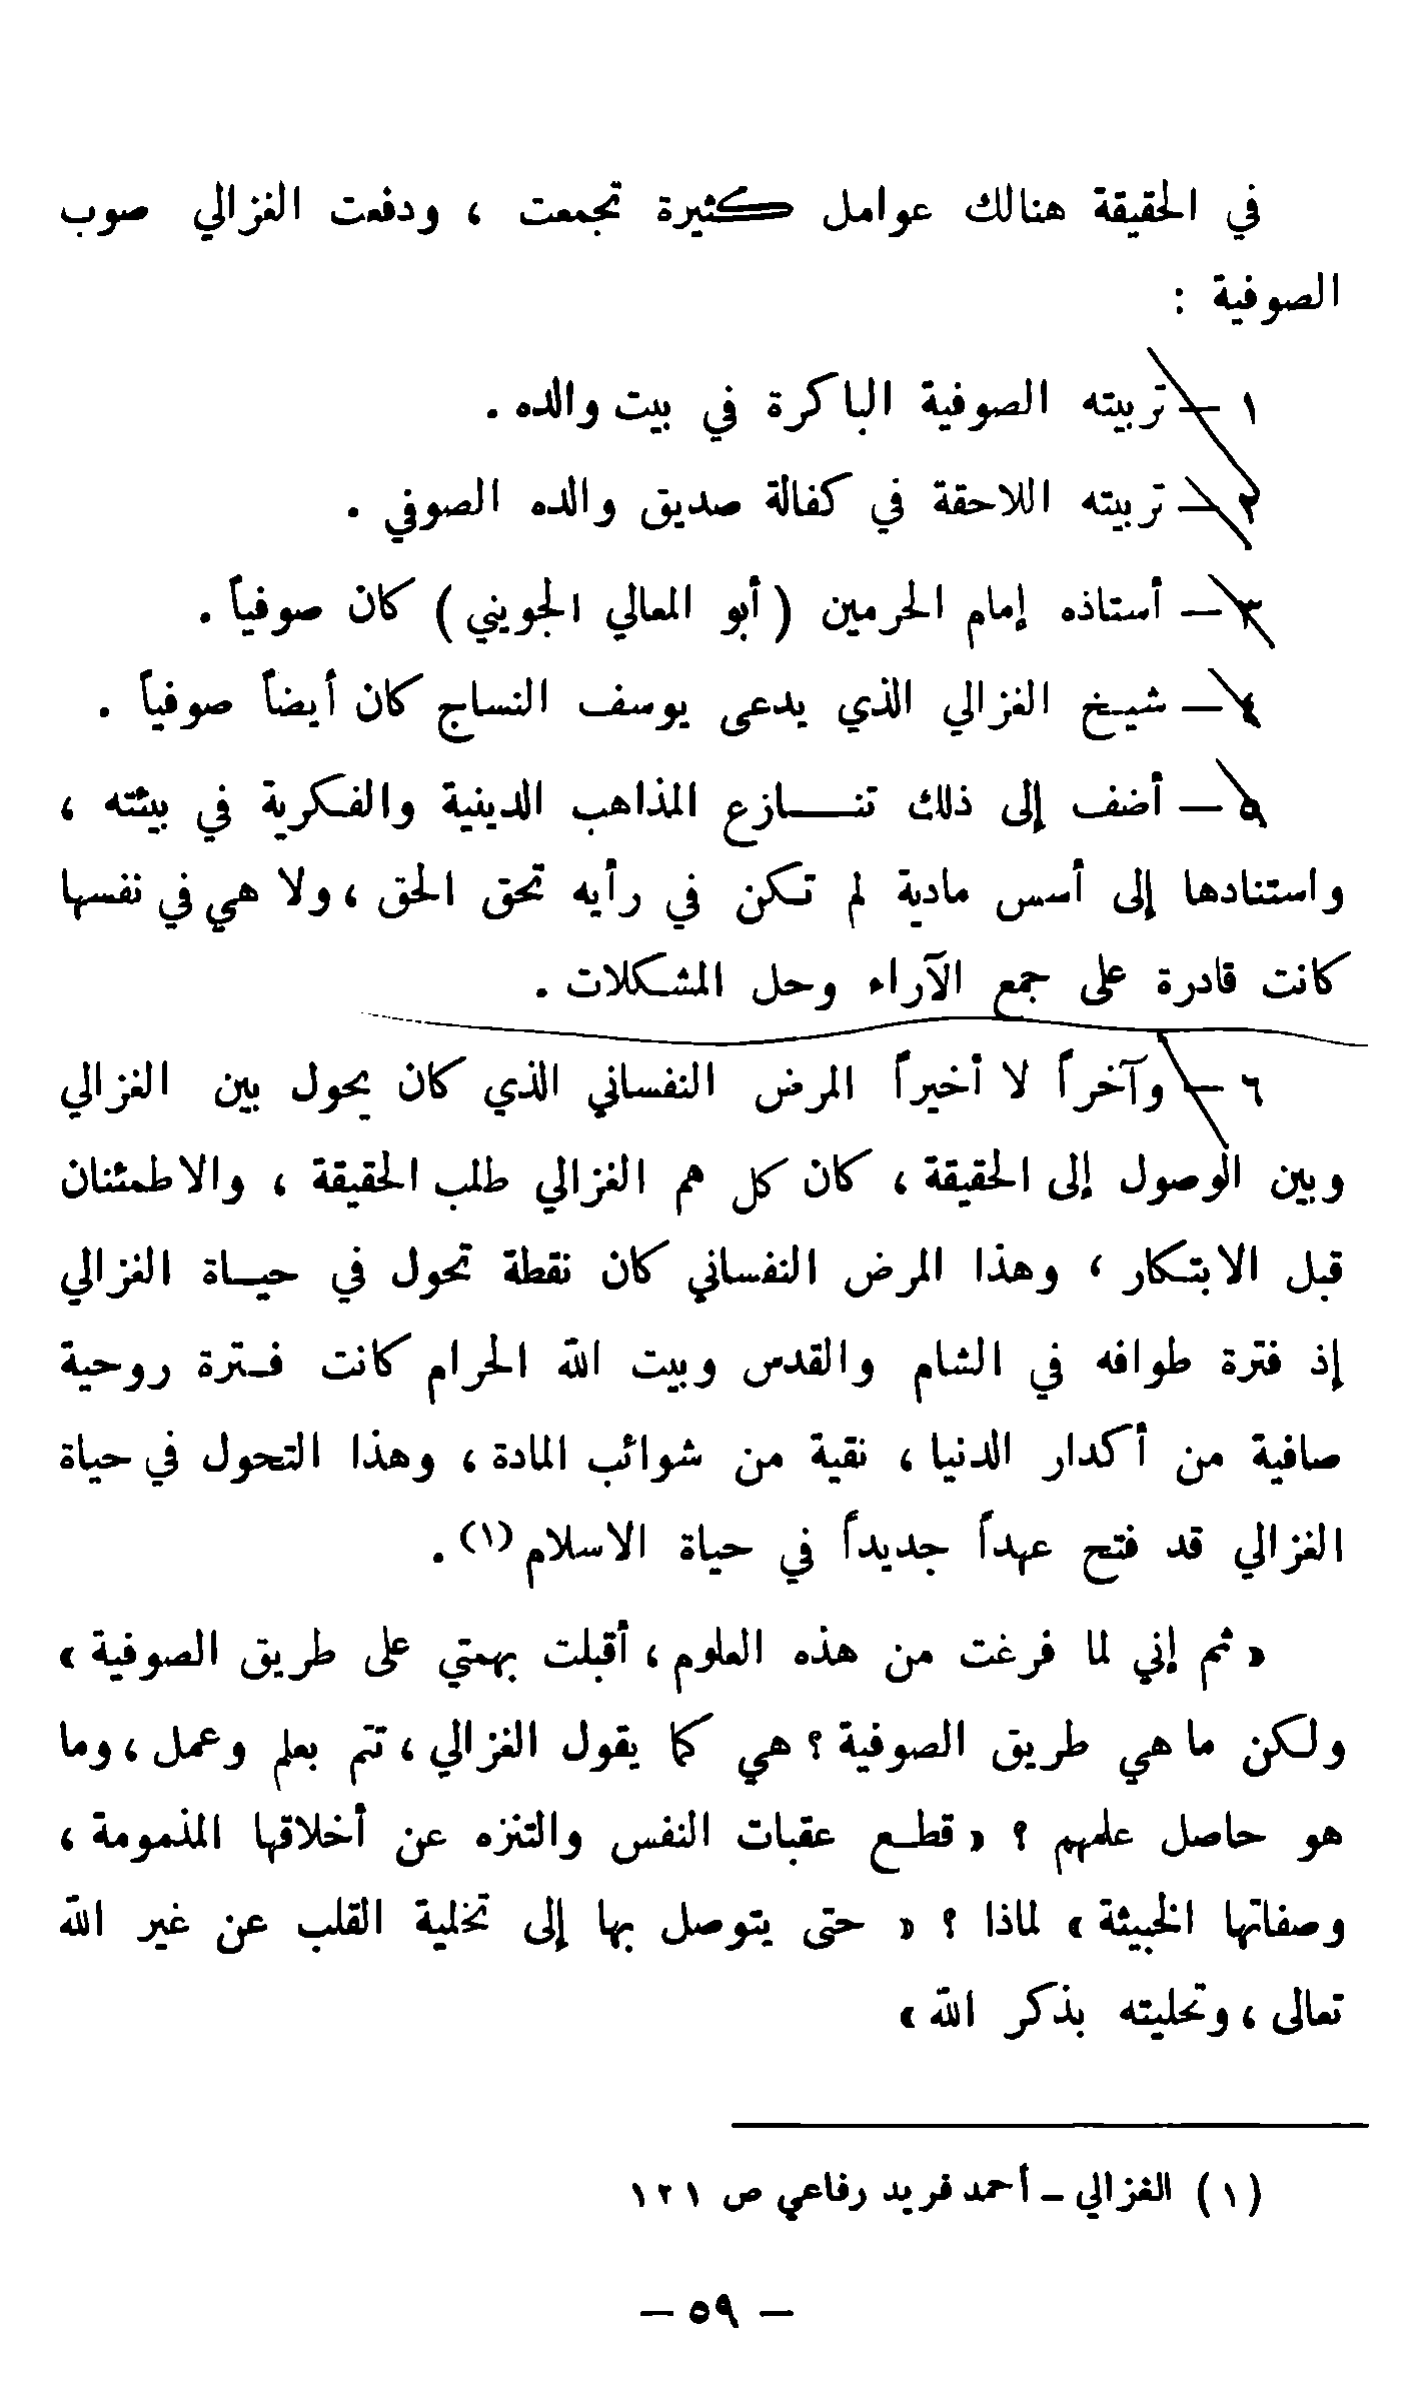 في الحقيقة هنالك عوامل كثيرة تجمعت ، ودفعت الغزالي صوب
الصوفية :
١ – تربيته الصوفية الباكرة في بيت والده .
٢ – تربيته اللاحقة في كفالة صديق والده الصوفي .
٣ – أستاذه إمام الحرمين ( أبو المعالي الجويني ) كان صوفياً .
٤ – شيخ الغزالي الذي يدعى يوسف النساج كان أيضاً صوفياً .
٥ – أضف إلى ذلك تنازع المذاهب الدينية والفكرية في بيئته ،
واستنادها إلى أسس مادية لم تكن في رأيه تحق الحق ، ولا هي في نفسها
كانت قادرة على جمع الآراء وحل المشكلات .
٦ – وآخراً لا أخيراً المرض النفساني الذي كان يحول بين الغزالي
وبين الوصول إلى الحقيقة ، كان كل هم الغزالي طلب الحقيقة ، والاطمئنان
قبل الابتكار ، وهذا المرض النفساني كان نقطة تحول في حياة الغزالي
إذ فترة طوافه في الشام والقدس وبيت الله الحرام كانت فترة روحية
صافية من أكدار الدنيا ، نقية من شوائب المادة ، وهذا التحول في حياة
الغزالي قد فتح عهداً جديداً في حياة الاسلام (١) .
« ثم إني لما فرغت من هذه العلوم ، أقبلت بهمتي على طريق الصوفية »
ولكن ما هي طريق الصوفية ؟ هي كما يقول الغزالي ، تتم بعلم وعمل ، وما
هو حاصل علمهم ؟ « قطع عقبات النفس والتنزه عن أخلاقها المذمومة ،
وصفاتها الخبيثة » لماذا ؟ « حتى يتوصل بها إلى تخلية القلب عن غير الله
تعالى ، وتحليته بذكر الله »
(١) الغزالي – أحمد فريد رفاعي ص ١٢١
– ٥٩ –